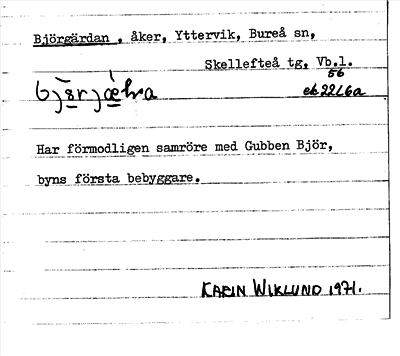 Björgärdan , åker, Yttervik, Bureå sn,
Skellefteå tg, Vb.l.
56
ek 22L6a
Har förmodligen samröre med Gubben Björ,
byns första bebyggare.
KARIN WIKLUND 1971.